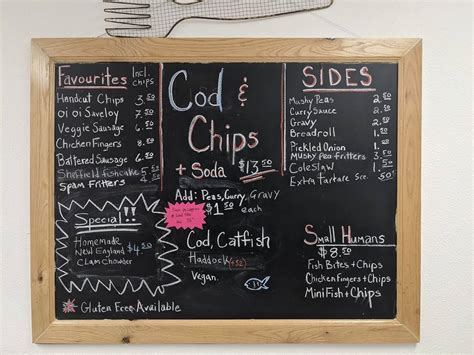 Favourites Incl. chips
Handcut Chips 3.50
oi oi Saveloy 7.50
Veggie Sausage 6.50
Chicken Fingers 8.50
Battered Sausage 6.50
Sheffield fishcake 5.50
Spam Fritters
Special!!
Homemade
New England $4.50
Clam Chowder
Gluten Free Available
Cod &
Chips
+ Soda $13.50
Add: Peas, Curry, Gravy
$1.50 each
Cod, Catfish
Haddock (+.50)
Vegan.
SIDES
Mushy Peas 2.50
Curry Sauce 2.50
Gravy
Breadroll 1.50
Pickled Onion
Mushy Pea fritters
Coleslaw
Extra Tartare Sce. .50
Small Humans
$8.50
Fish Bites + Chips
Chicken Fingers + Chips
Mini Fish + Chips